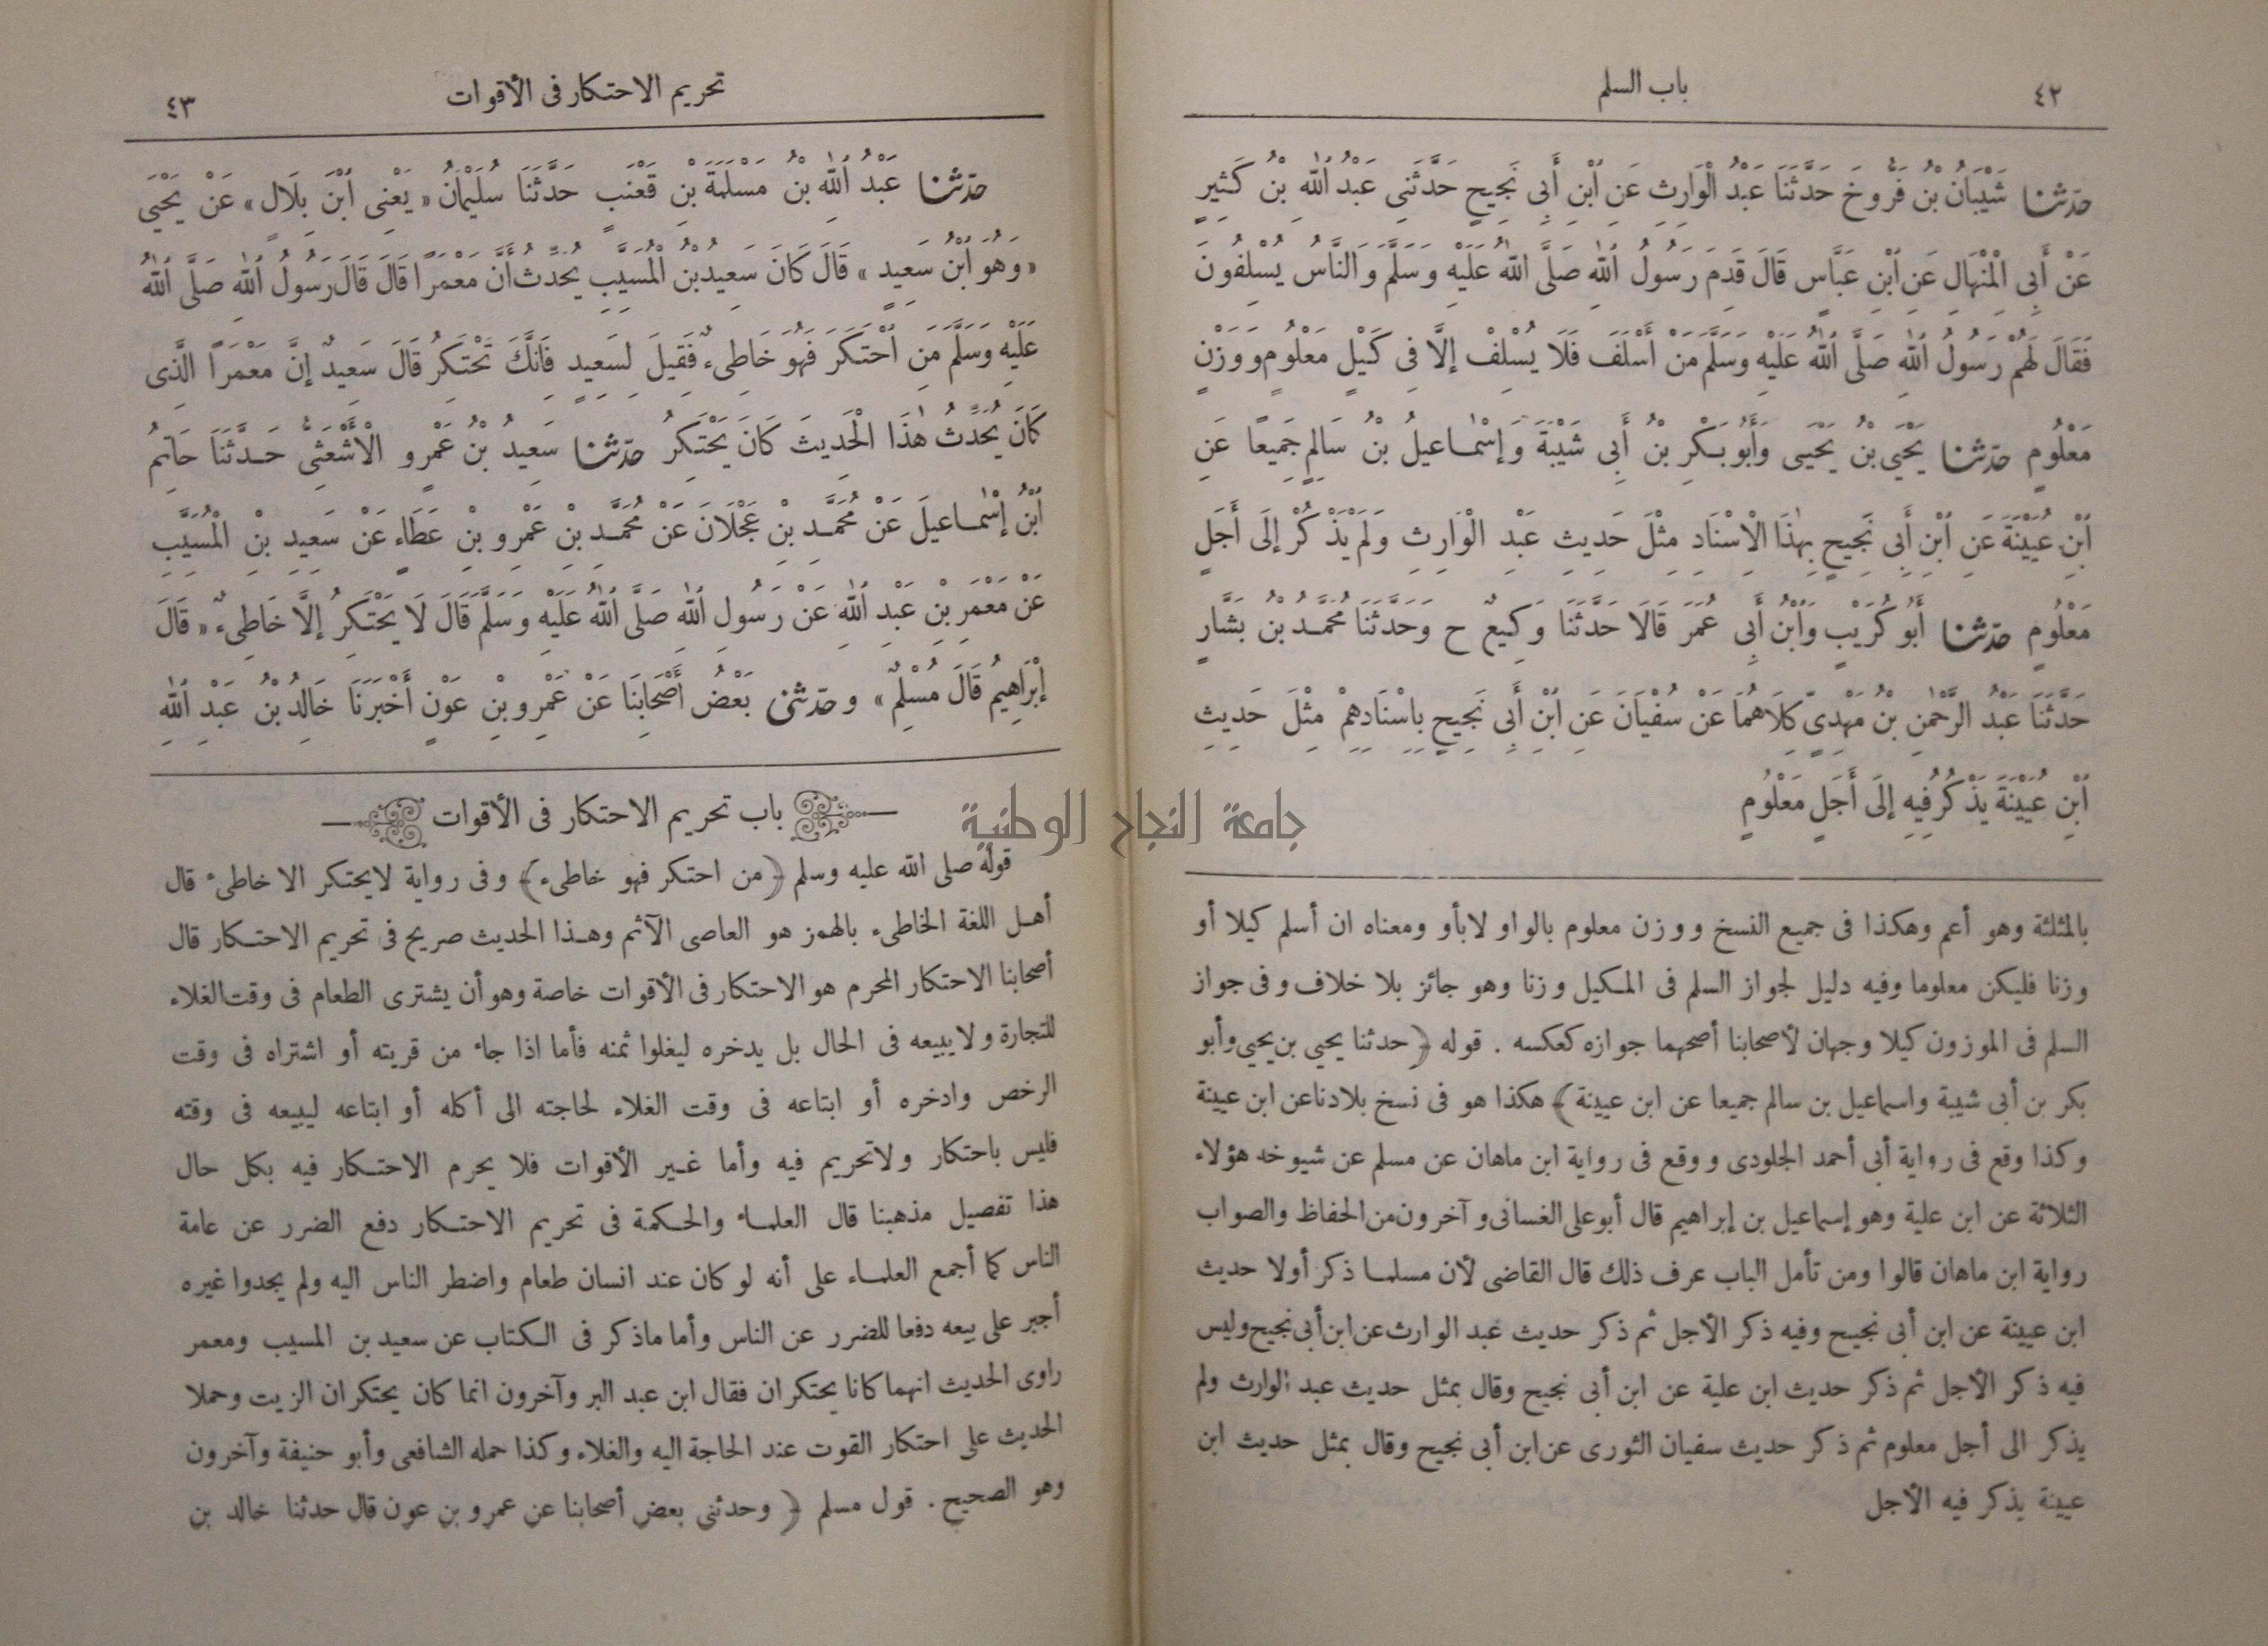 ٤٢
باب السلم
حدثنا شَيْبَانُ بْنُ فَرُّوخَ حَدَّثَنَا عَبْدُ الْوَارِثِ عَنِ ابْنِ أَبِى نَجِيحٍ حَدَّثَنِى عَبْدُ اللهِ بْنُ كَثِيرٍ
عَنْ أَبِى الْمِنْهَالِ عَنِ ابْنِ عَبَّاسٍ قَالَ قَدِمَ رَسُولُ اللهِ صَلَّى اللهُ عَلَيْهِ وَسَلَّمَ وَالنَّاسُ يُسْلِفُونَ
فَقَالَ لَهُمْ رَسُولُ اللهِ صَلَّى اللهُ عَلَيْهِ وَسَلَّمَ مَنْ أَسْلَفَ فَلَا يُسْلِفْ إلَّا فِى كَيْلٍ مَعْلُومٍ وَوَزْنٍ
مَعْلُومٍ حدثنا يَحْيَى بْنُ يَحْيَى وَأَبُو بَكْرِ بْنُ أَبِى شَيْبَةَ وَإِسْمَاعِيلُ بْنُ سَالِمٍ جَمِيعًا عَنِ
ابْنِ عُيَيْنَةَ عَنِ ابْنِ أَبِى نَجِيحٍ بِهٰذَا الْاِسْنَادِ مِثْلَ حَدِيثِ عَبْدِ الْوَارِثِ وَلَمْ يَذْكُرْ إلَى أَجَلٍ
مَعْلُومٍ حدثنا أَبُو كُرَيْبٍ وَابْنُ أَبِى عُمَرَ قَالَا حَدَّثَنَا وَكِيعٌ ح وَحَدَّثَنَا مُحَمَّدُ بْنُ بَشَّارٍ
حَدَّثَنَا عَبْدُ الرَّحْمٰنِ بْنُ مَهْدِىٍّ كِلَاهُمَا عَنْ سُفْيَانَ عَنِ ابْنِ أَبِى نَجِيحٍ بِاِسْنَادِهِمْ مِثْلَ حَدِيثِ
ابْنِ عُيَيْنَةَ يَذْكُرُ فِيهِ إلَى أَجَلٍ مَعْلُومٍ
بالمثلثة وهو أعم وهكذا فى جميع النسخ ووزن معلوم بالواو لا بأو ومعناه ان أسلم كيلا أو
وزنا فليكن معلوما وفيه دليل لجواز السلم فى المكيل وزنا وهو جائز بلا خلاف وفى جواز
السلم فى الموزون كيلا وجهان لأصحابنا أصحهما جوازه كعكسه . قوله ﴿حدثنا يحيى بن يحيى وأبو
بكر بن أبى شيبة واسماعيل بن سالم جميعا عن ابن عيينة﴾ هكذا هو فى نسخ بلادنا عن ابن عيينة
وكذا وقع فى رواية أبى أحمد الجلودى ووقع فى رواية ابن ماهان عن مسلم عن شيوخه هؤلاء
الثلاثة عن ابن علية وهو إسماعيل بن إبراهيم قال أبو على الغسانى وآخرون من الحفاظ والصواب
رواية ابن ماهان قالوا ومن تأمل الباب عرف ذلك قال القاضى لأن مسلما ذكر أولا حديث
ابن عيينة عن ابن أبى نجيح وفيه ذكر الأجل ثم ذكر حديث عبد الوارث عن ابن أبى نجيح وليس
فيه ذكر الأجل ثم ذكر حديث ابن علية عن ابن أبى نجيح وقال بمثل حديث عبد الوارث ولم
يذكر الى أجل معلوم ثم ذكر حديث سفيان الثورى عن ابن أبى نجيح وقال بمثل حديث ابن
عيينة يذكر فيه الأجل
تحريم الاحتكار فى الأقوات
٤٣
حدثنا عَبْدُ اللهِ بْنُ مَسْلَمَةَ بْنِ قَعْنَبٍ حَدَّثَنَا سُلَيْمَانُ «يَعْنِى ابْنَ بِلَالٍ» عَنْ يَحْيَى
«وَهُوَ ابْنُ سَعِيدٍ» قَالَ كَانَ سَعِيدُ بْنُ الْمُسَيَّبِ يُحَدِّثُ أَنَّ مَعْمَرًا قَالَ قَالَ رَسُولُ اللهِ صَلَّى اللهُ
عَلَيْهِ وَسَلَّمَ مَنِ احْتَكَرَ فَهُوَ خَاطِىءٌ فَقِيلَ لِسَعِيدٍ فَاِنَّكَ تَحْتَكِرُ قَالَ سَعِيدٌ إِنَّ مَعْمَرًا الَّذِى
كَانَ يُحَدِّثُ هٰذَا الْحَدِيثَ كَانَ يَحْتَكِرُ حدثنا سَعِيدُ بْنُ عَمْرٍو الْأَشْعَثِىُّ حَدَّثَنَا حَاتِمُ
ابْنُ إِسْمَاعِيلَ عَنْ مُحَمَّدِ بْنِ عَجْلَانَ عَنْ مُحَمَّدِ بْنِ عَمْرِو بْنِ عَطَاءٍ عَنْ سَعِيدِ بْنِ الْمُسَيَّبِ
عَنْ مَعْمَرِ بْنِ عَبْدِ اللهِ عَنْ رَسُولِ اللهِ صَلَّى اللهُ عَلَيْهِ وَسَلَّمَ قَالَ لَا يَحْتَكِرُ إلَّا خَاطِىءٌ «قَالَ
إِبْرَاهِيمُ قَالَ مُسْلِمٌ» وحدثنى بَعْضُ أَصْحَابِنَا عَنْ عَمْرِو بْنِ عَوْنٍ أَخْبَرَنَا خَالِدُ بْنُ عَبْدِ اللهِ
باب تحريم الاحتكار فى الأقوات
قوله صلى الله عليه وسلم ﴿من احتكر فهو خاطىء﴾ وفى رواية لا يحتكر الا خاطىء قال
أهل اللغة الخاطىء بالهمز هو العاصى الآثم وهذا الحديث صريح فى تحريم الاحتكار قال
أصحابنا الاحتكار المحرم هو الاحتكار فى الأقوات خاصة وهو أن يشترى الطعام فى وقت الغلاء
للتجارة ولا يبيعه فى الحال بل يدخره ليغلوا ثمنه فأما اذا جاء من قريته أو اشتراه فى وقت
الرخص وادخره أو ابتاعه فى وقت الغلاء لحاجته الى أكله أو ابتاعه ليبيعه فى وقته
فليس باحتكار ولا تحريم فيه وأما غير الأقوات فلا يحرم الاحتكار فيه بكل حال
هذا تفصيل مذهبنا قال العلماء والحكمة فى تحريم الاحتكار دفع الضرر عن عامة
الناس كما أجمع العلماء على أنه لو كان عند انسان طعام واضطر الناس اليه ولم يجدوا غيره
أجبر على بيعه دفعا للضرر عن الناس وأما ماذكر فى الكتاب عن سعيد بن المسيب ومعمر
راوى الحديث انهما كانا يحتكران فقال ابن عبد البر وآخرون انما كان يحتكران الزيت وحملا
الحديث على احتكار القوت عند الحاجة اليه والغلاء وكذا حمله الشافعى وأبو حنيفة وآخرون
وهو الصحيح . قول مسلم ﴿وحدثنى بعض أصحابنا عن عمرو بن عون قال حدثنا خالد بن
جامعة النجاح الوطنية